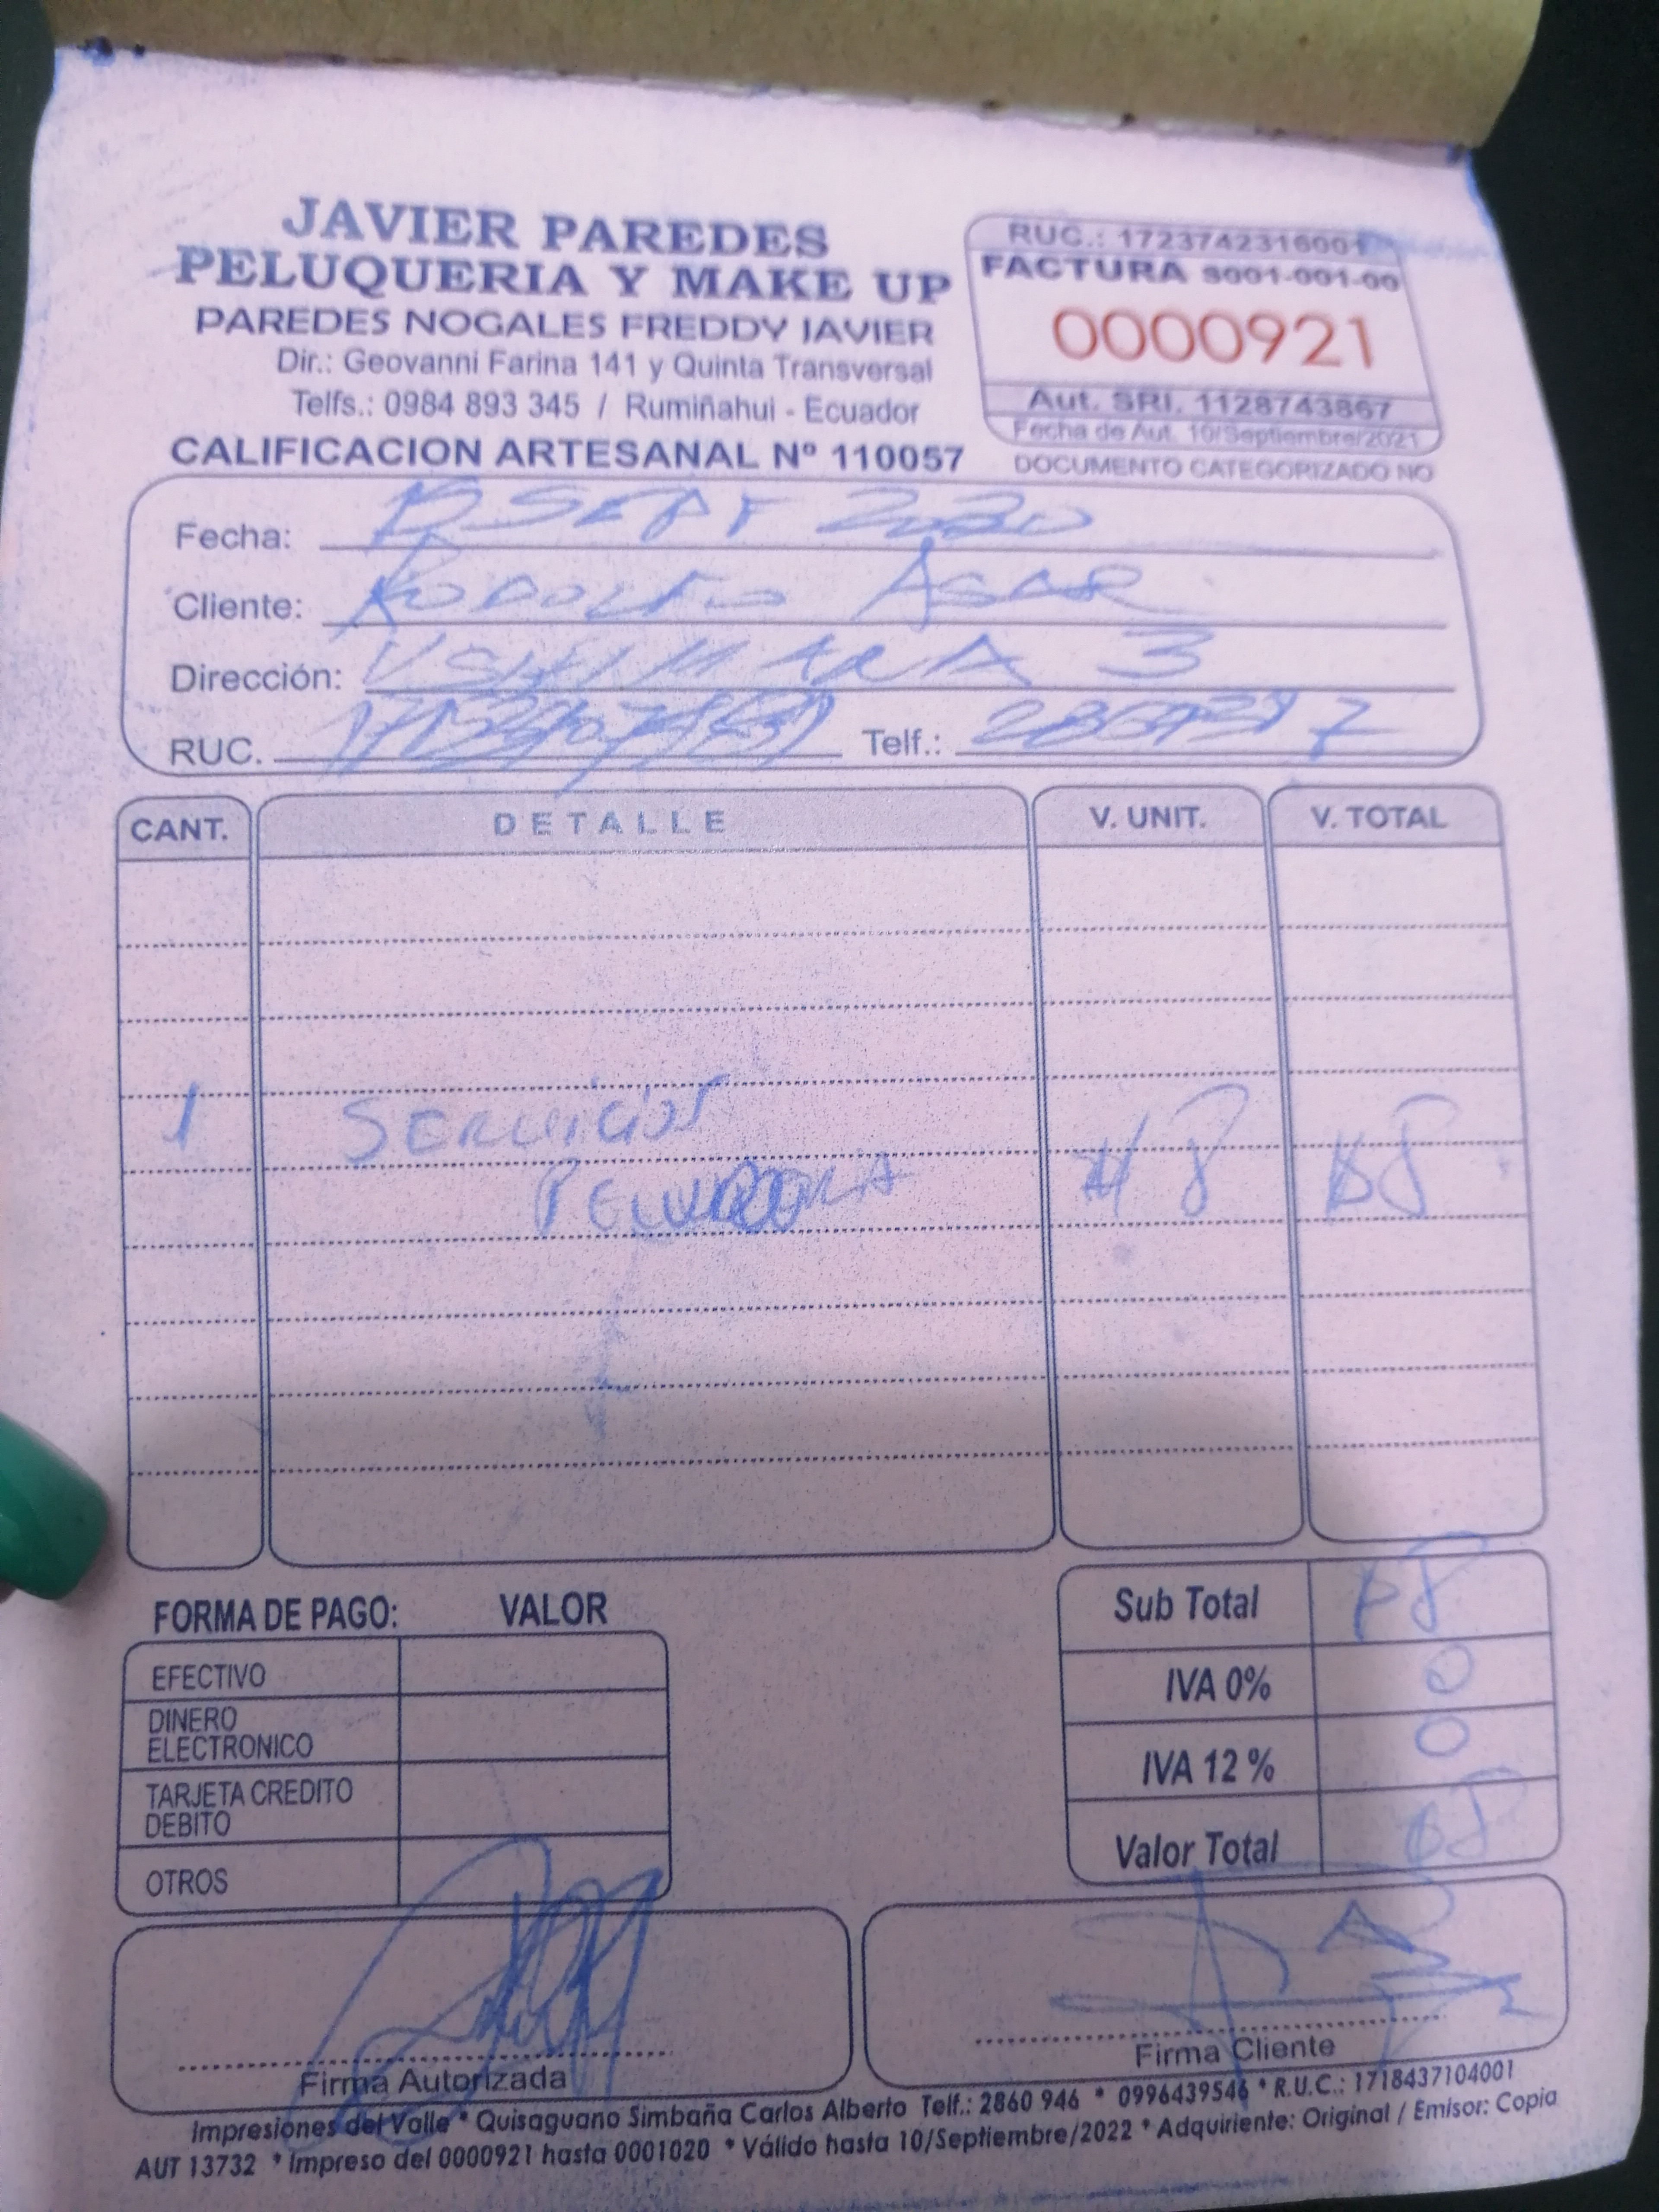 JAVIER PAREDES
PELUQUERIA Y MAKE UP
PAREDES NOGALES FREDDY JAVIER
Dir.: Geovanni Farina 141 y Quinta Transversal
Telfs.: 0984 893 345 / Rumiñahui - Ecuador
CALIFICACION ARTESANAL Nº 110057
RUC.: 1723742316001
FACTURA S001-001-00
0000921
Aut. SRI. 1128743867
Fecha de Aut. 10/Septiembre/2021
DOCUMENTO CATEGORIZADO NO
Fecha: SEPT
Cliente: RODOLFO
Dirección: USHIMANA 3
RUC. Telf.:
CANT. DETALLE V. UNIT. V. TOTAL
1 SERVICIOS
PELUQUERIA $ 8 $8
FORMA DE PAGO: VALOR
EFECTIVO
DINERO ELECTRONICO
TARJETA CREDITO DEBITO
OTROS
Sub Total $8
IVA 0% 0
IVA 12 % 0
Valor Total $8
Firma Autorizada
Firma Cliente
Impresiones del Valle * Quisaguano Simbaña Carlos Alberto Telf.: 2860 946 * 0996439546 * R.U.C.: 1718437104001
AUT 13732 * Impreso del 0000921 hasta 0001020 * Válido hasta 10/Septiembre/2022 * Adquiriente: Original / Emisor: Copia